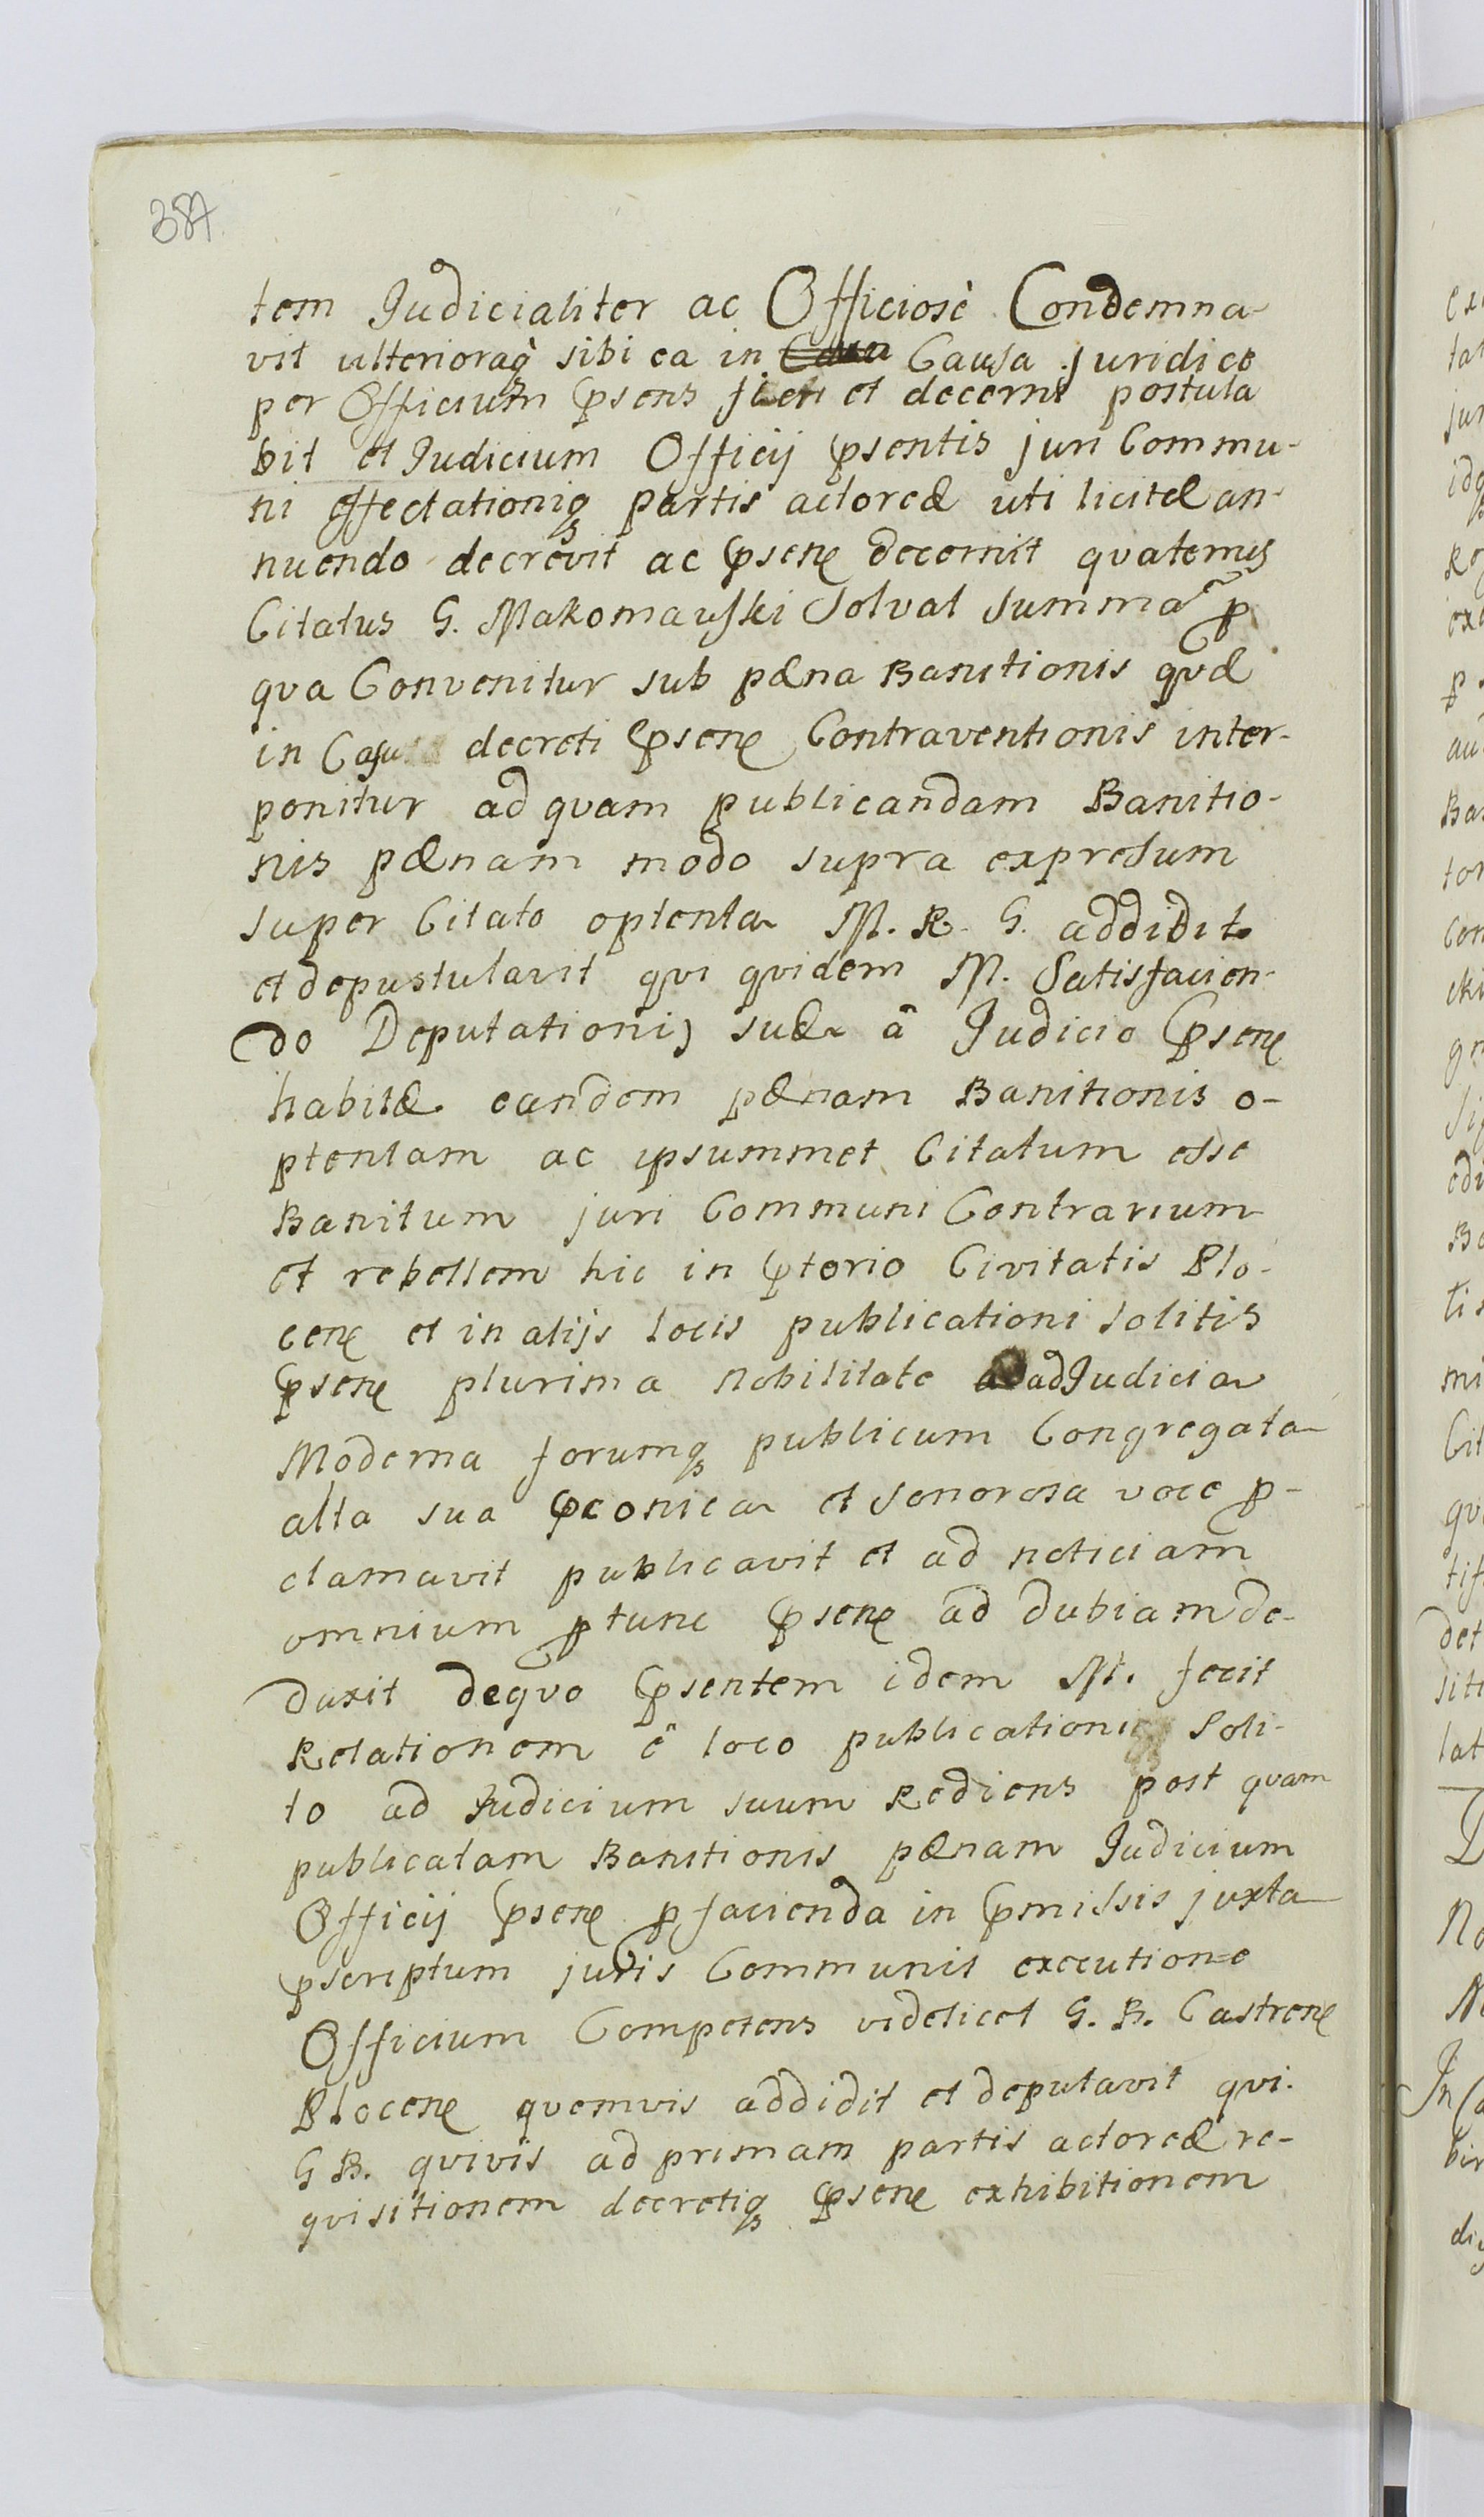 387
tem Judicialiter ac Officiosè Condemna-
vit ulterioraq̀ sibi ea in Causa juridice
per Officium p̃sens fieri et decerni postula
bit et Judicium Officij p̃sentis juri Commu-
ni effectationiq̃ partis actoreæ uti licitæ an-
nuendo decrevit ac p̃sens decernit quatenus
Citatus G. Makomauski Solvat Summã p̱
qua Convenitur sub pæna Banitionis quæ
in Casu decreti p̃sens Contraventionis inter-
ponitur ad quam publicandam Banitio-
nis pænam modo supra expresum
super Citato optenta M. R. G. addidit
et depustulavit qui quidem M. Satisfacien-
do Deputationis suæ â Judicio p̃sens
habitæ eandem pænam Banitionis o-
ptentam ac ipsummet Citatum esse
Banitum juri Communi Contrarium
et rebellem hic in p̃torio Civitatis Plo-
cens et in alijs locis publicationi solitis
p̃sens plurima nobilitate ad Judicia
Moderna forumq̃ publicum Congregata
alta sua p̃conica et sonorosa voce p̱-
clamavit publicavit et ad noticiam
omnium p̱tunc p̃sens ad dubiam de-
duxit dequo p̃sentem idem M. fecit
Relationem ê loco publicationis Soli-
to ad Judicium suum Rediens post quam
publicatam Banitionis pænam Judicium
Officij p̃sens p̱ facienda in p̃missis juxta
p̃scriptum juris Communis executione
Officium Competens videlicet G. B. Castrens
Plocens quemvis addidit et deputavit qui.
G B. quivis ad primam partis actoreæ re-
quisitionem decretiq̃ p̃sens exhibitionem